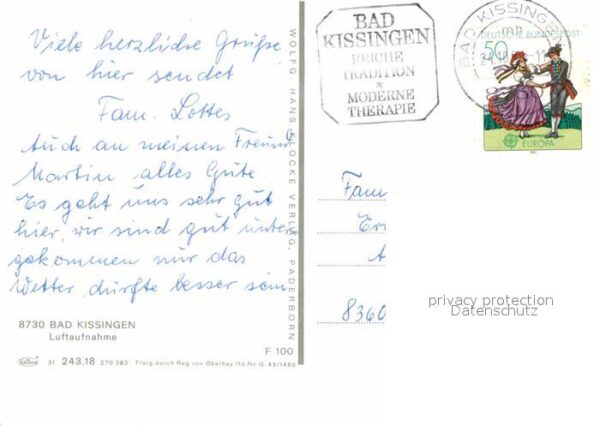 Viele herzliche Grüße
von hier sendet
Fam. Lottes
Auch an meinen Freund
Martin alles Gute
Es geht uns sehr gut
hier, wir sind gut unter
gekommen nur das
Wetter dürfte besser sein
8730 BAD KISSINGEN
Luftaufnahme
F 100
21 243.18 270.382 Freig. durch Reg. von Oberbay. lfd. No G. 43/1486
WOLFG. HANS KLOCKE VERLAG, PADERBORN
BAD
KISSINGEN
REICHE
TRADITION
*
MODERNE
THERAPIE
BAD KISSINGEN
DEUTSCHE BUNDESPOST
50
EUROPA
Fam
8360
privacy protection
Datenschutz